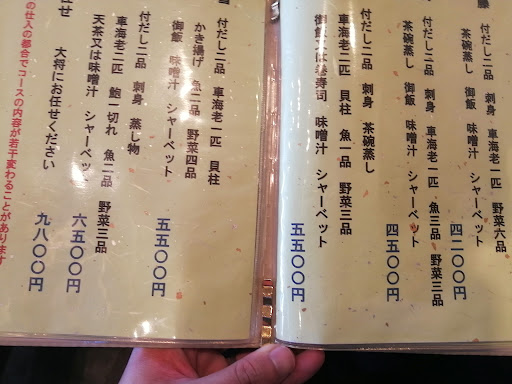 藤
付だし二品 刺身 車海老一匹 野菜六品
茶碗蒸し 御飯 味噌汁 シャーベット
四二〇〇円
付だし二品 刺身 車海老一匹 魚三品 野菜三品
茶碗蒸し 御飯 味噌汁 シャーベット
四五〇〇円
付だし二品 刺身 茶碗蒸し
車海老二匹 貝柱 魚一品 野菜三品
御飯又は巻寿司 味噌汁 シャーベット
五五〇〇円
付だし二品 車海老一匹 貝柱
かき揚げ 魚二品 野菜四品
御飯 味噌汁 シャーベット
五五〇〇円
付だし二品 刺身 蒸し物
車海老二匹 鮑一切れ 魚二品 野菜三品
天茶又は味噌汁 シャーベット
六五〇〇円
任せ 大将にお任せください
九八〇〇円
の仕入の都合でコースの内容が若干変わることがあります